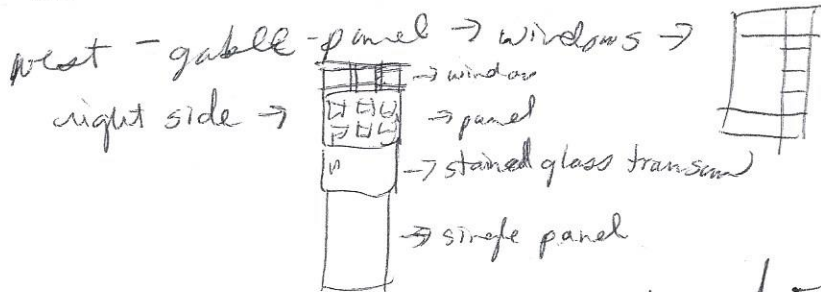 west - gable - panel → windows →
→ window
right side → → panel
→ stained glass transom
→ single panel